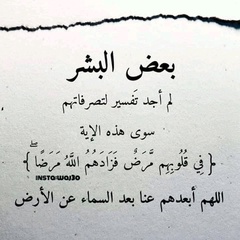 بعض البشر
لم أجد تَفسير لتصرفاتهم
سوى هذه الإية
﴿ فِي قُلُوبِهِم مَّرَضٌ فَزَادَهُمُ اللَّهُ مَرَضًا ۖ ﴾
INSTA:WAJ30
اللهم أبعدهم عنا بعد السماء عن الأرض